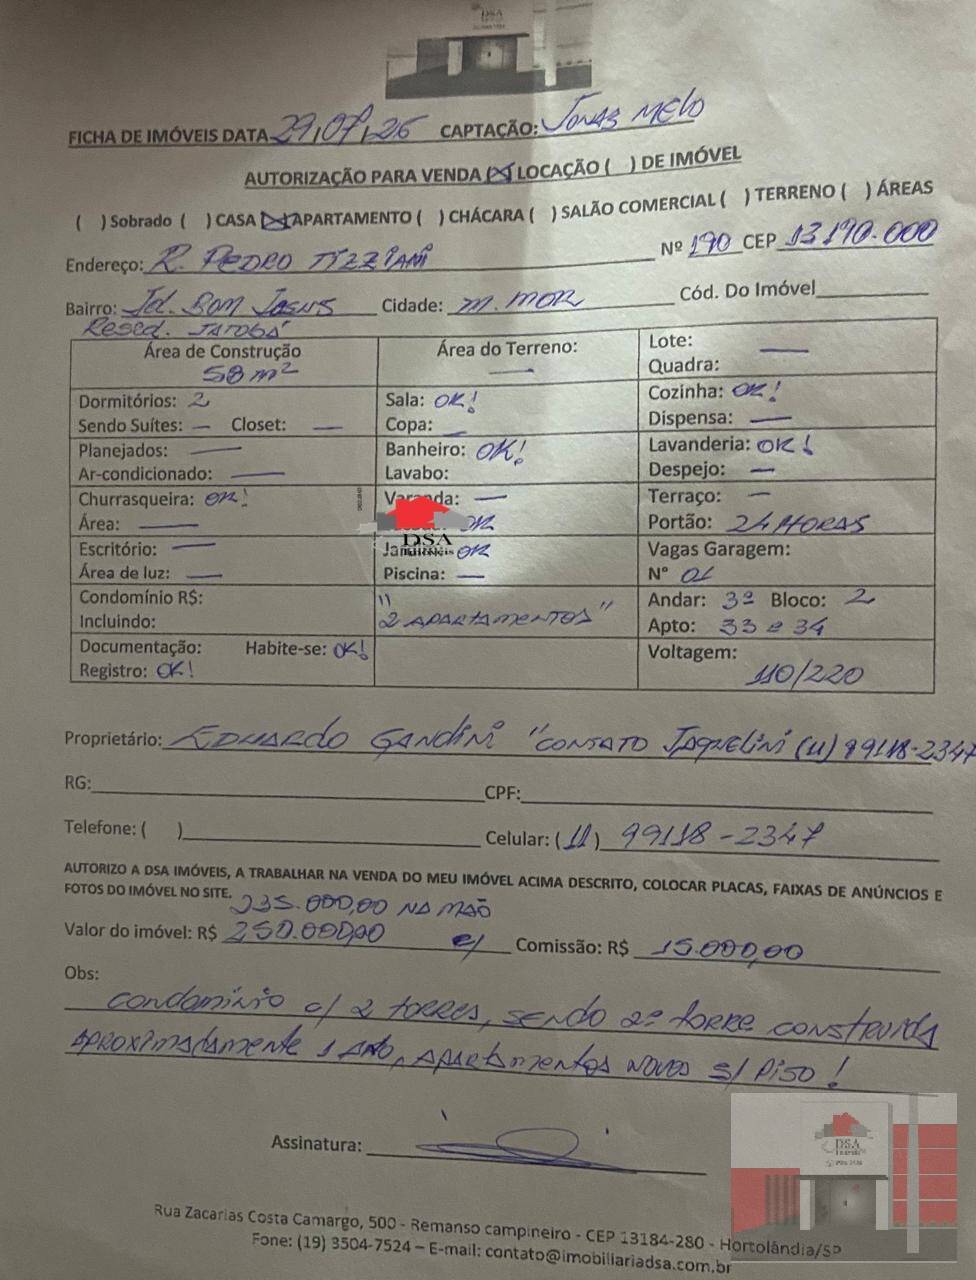 DSA
FICHA DE IMÓVEIS DATA 29/07/26 CAPTAÇÃO: JONAS MELO
AUTORIZAÇÃO PARA VENDA (X) LOCAÇÃO ( ) DE IMÓVEL
( ) Sobrado ( ) CASA (X) APARTAMENTO ( ) CHÁCARA ( ) SALÃO COMERCIAL ( ) TERRENO ( ) ÁREAS
Endereço: R. PEDRO TIZZIANI Nº 190 CEP 13190.000
Bairro: Jd. BOM JESUS Cidade: M. MOR Cód. Do Imóvel
Resed. JATOBÁ
Área de Construção 58 m² Área do Terreno: — Lote: — Quadra:
Dormitórios: 2 Sala: OK! Cozinha: OK!
Sendo Suítes: — Closet: — Copa: — Dispensa: —
Planejados: — Banheiro: OK! Lavanderia: OK!
Ar-condicionado: — Lavabo: Despejo: —
Churrasqueira: OK! Varanda: — Terraço: —
Área: — OK Portão: 24 HORAS
Escritório: — OK Vagas Garagem:
Área de luz: — Piscina: — N° 01
Condomínio R$: "2 APARTAMENTOS" Andar: 3º Bloco: 2
Incluindo: Apto: 33 e 34
Documentação: Habite-se: OK! Voltagem:
Registro: OK! 110/220
Proprietário: EDUARDO GANDINI "CONTATO JAQUELINI (11) 99118-2347
RG: CPF:
Telefone: ( ) Celular: (11) 99118-2347
AUTORIZO A DSA IMÓVEIS, A TRABALHAR NA VENDA DO MEU IMÓVEL ACIMA DESCRITO, COLOCAR PLACAS, FAIXAS DE ANÚNCIOS E
FOTOS DO IMÓVEL NO SITE. 235.000,00 NA MÃO
Valor do imóvel: R$ 250.000,00 c/ Comissão: R$ 15.000,00
Obs:
CONDOMÍNIO c/ 2 TORRES, SENDO 2º TORRE CONSTRUIDA
APROXIMADAMENTE 1 ANO, APARTAMENTOS NOVOS S/ PISO!
Assinatura:
Rua Zacarias Costa Camargo, 500 - Remanso campineiro - CEP 13184-280 - Hortolândia/SP
Fone: (19) 3504-7524 – E-mail: contato@imobiliariadsa.com.br
DSA
Imóveis
DSA